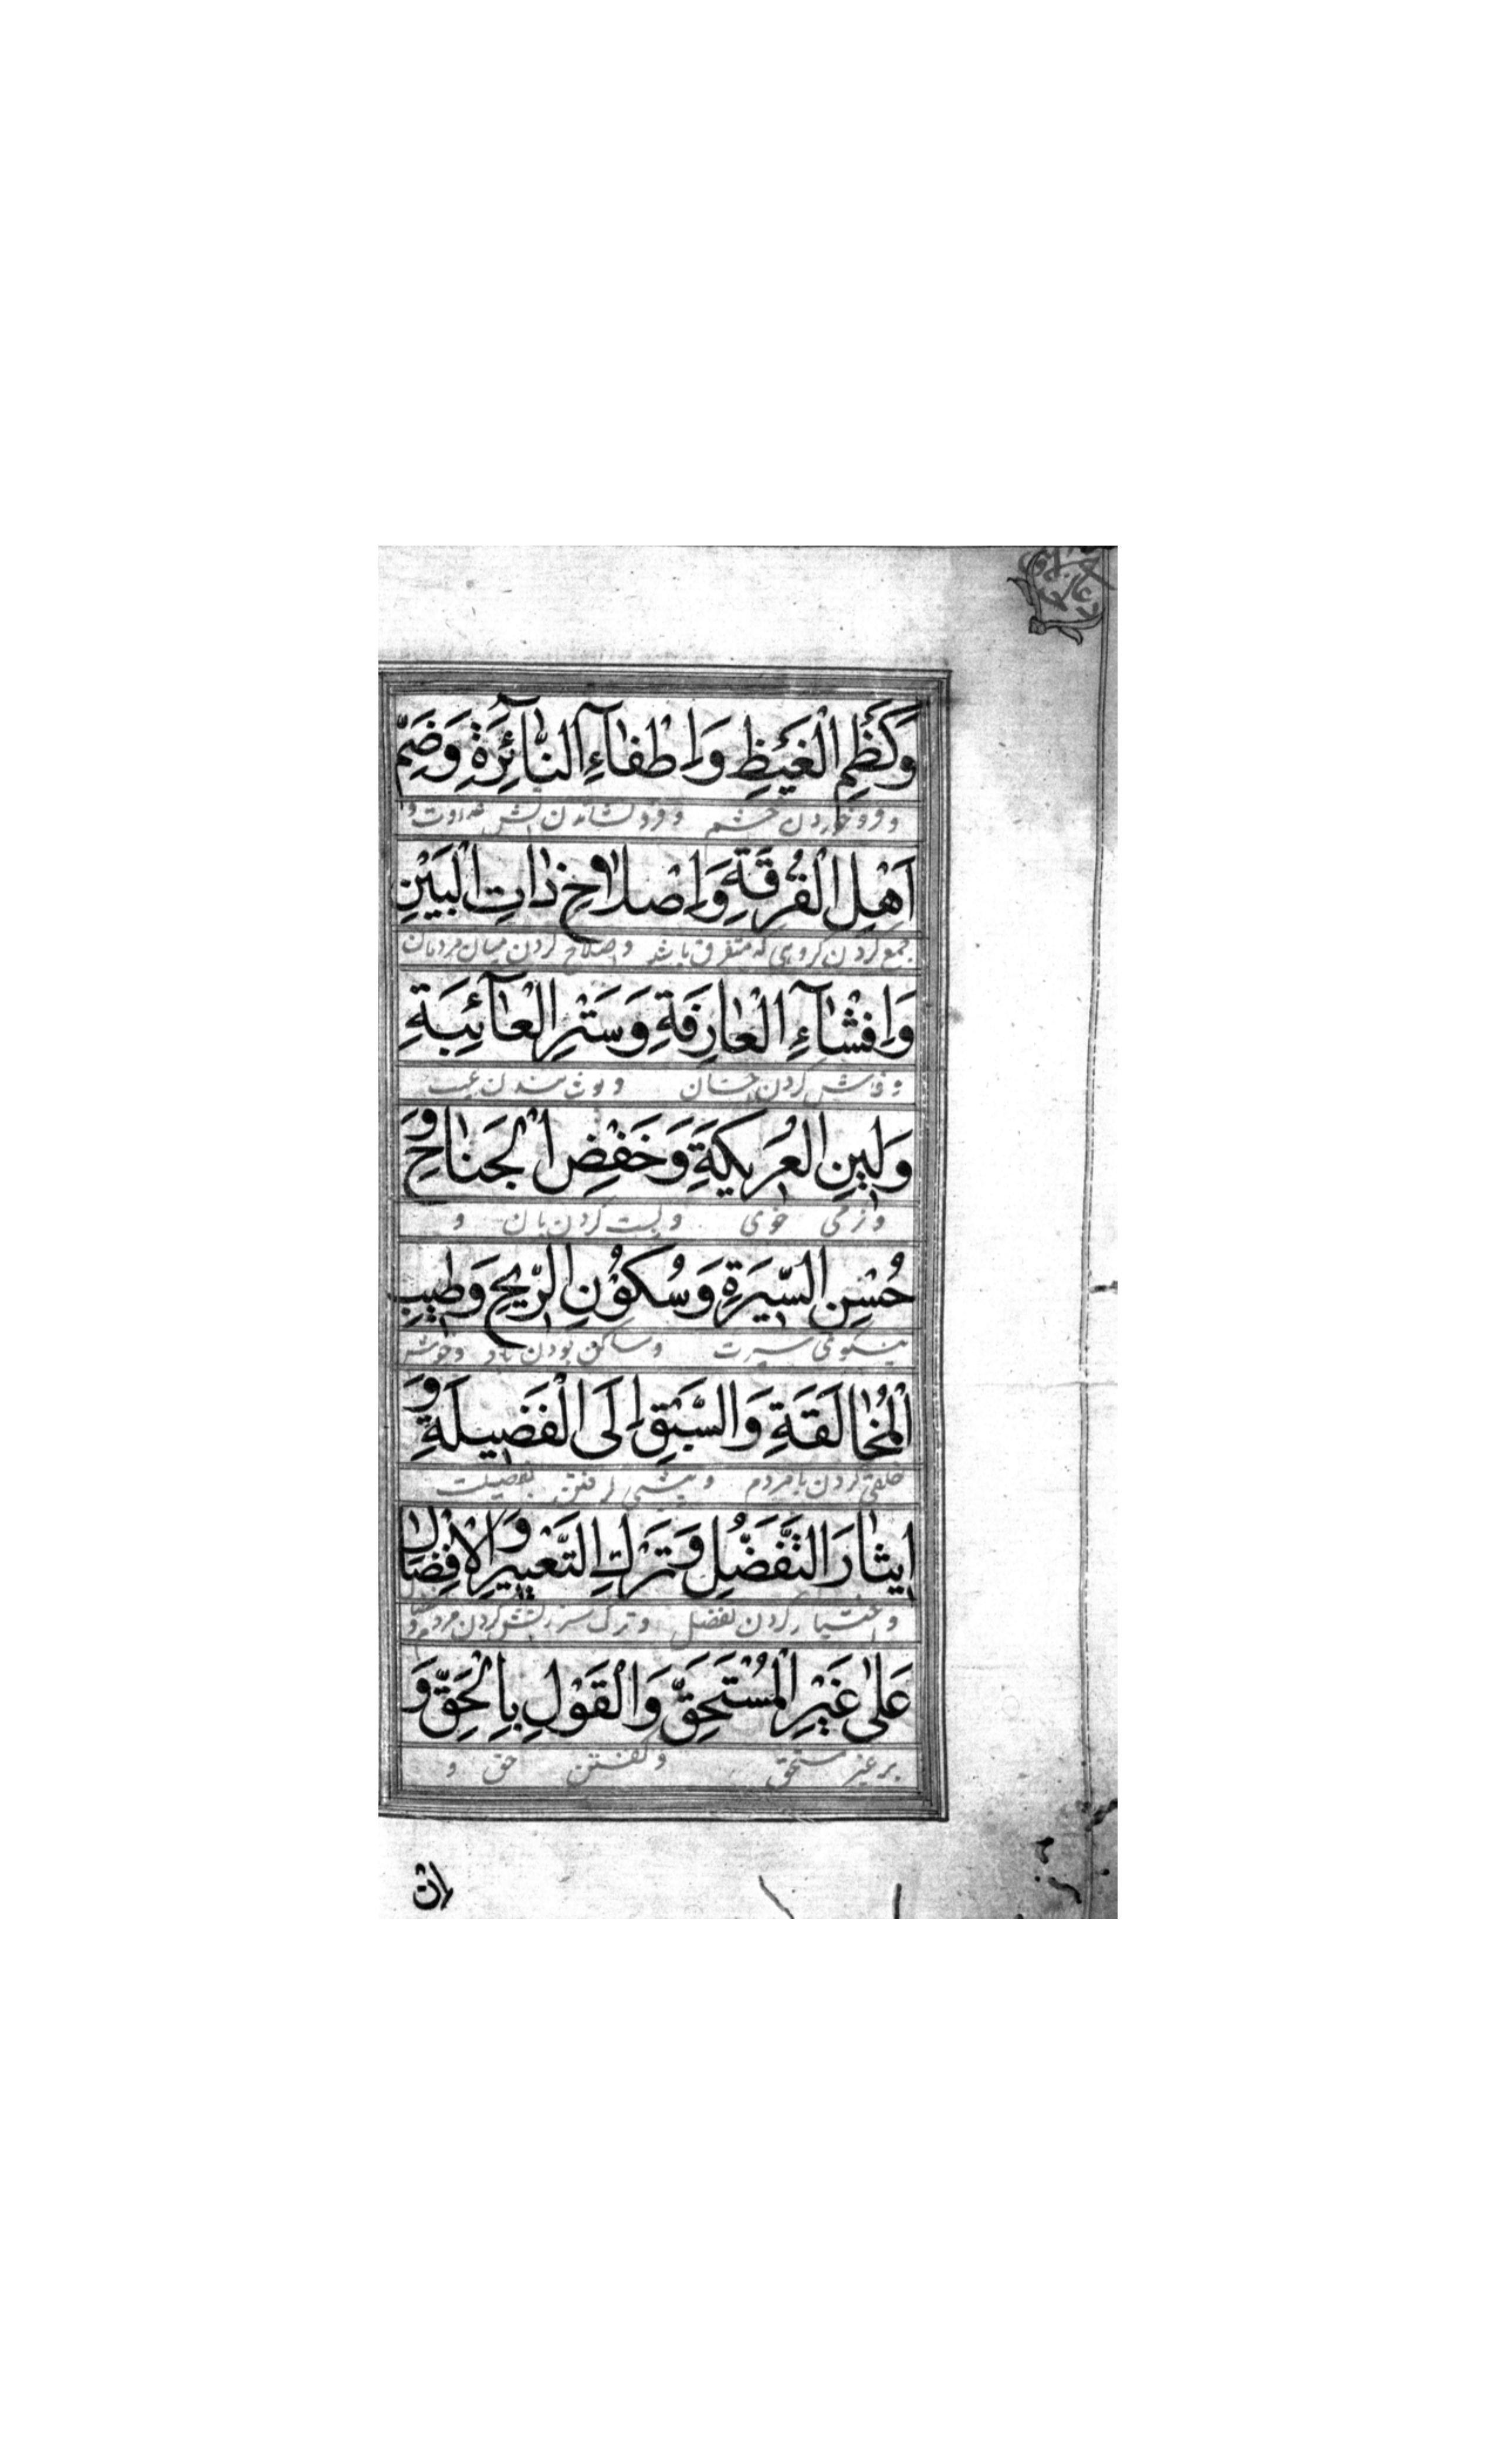 وَكَظْمِ الْغَيْظِ وَاِطْفآءِ النّآئِرَةِ وَضَمِّ
و فرو خوردن خشم و فرو نشاندن آتش عداوت و
اَهْلِ الْفُرْقَةِ وَاِصْلاحِ ذاتِ الْبَيْنِ
جمع کردن گروهی که متفرق باشد و اصلاح کردن میان مردمان
وَاِفْشآءِ الْعارِفَةِ وَسَتْرِ الْعآئِبَةِ
و فاش کردن احسان و عیب
وَلينِ الْعَريكَةِ وَخَفْضِ الْجَناحِ وَ
و نرمی خوی و پست کردن بال و
حُسْنِ السّيرَةِ وَسُكُوْنِ الرّيحِ وَطيبِ
نیکوئی سیرت و ساکن بودن باد و خوش
الْمُخالَقَةِ وَالسَّبْقِ اِلَى الْفَضيلَةِ وَ
خلقی کردن با مردم و پیشی گرفتن بفضیلت
ايثارَ التَّفَضُّلِ وَتَرْكِ التَّعْييرِ وَالْاِفْضالِ
و اختیار کردن تفضل و ترک سرزنش کردن مردم و
عَلى غَيْرِ الْمُسْتَحِقِّ وَالْقَوْلِ بِالْحَقِّ وَ
بر غیر مستحق و گفتن حق و
اِنْ